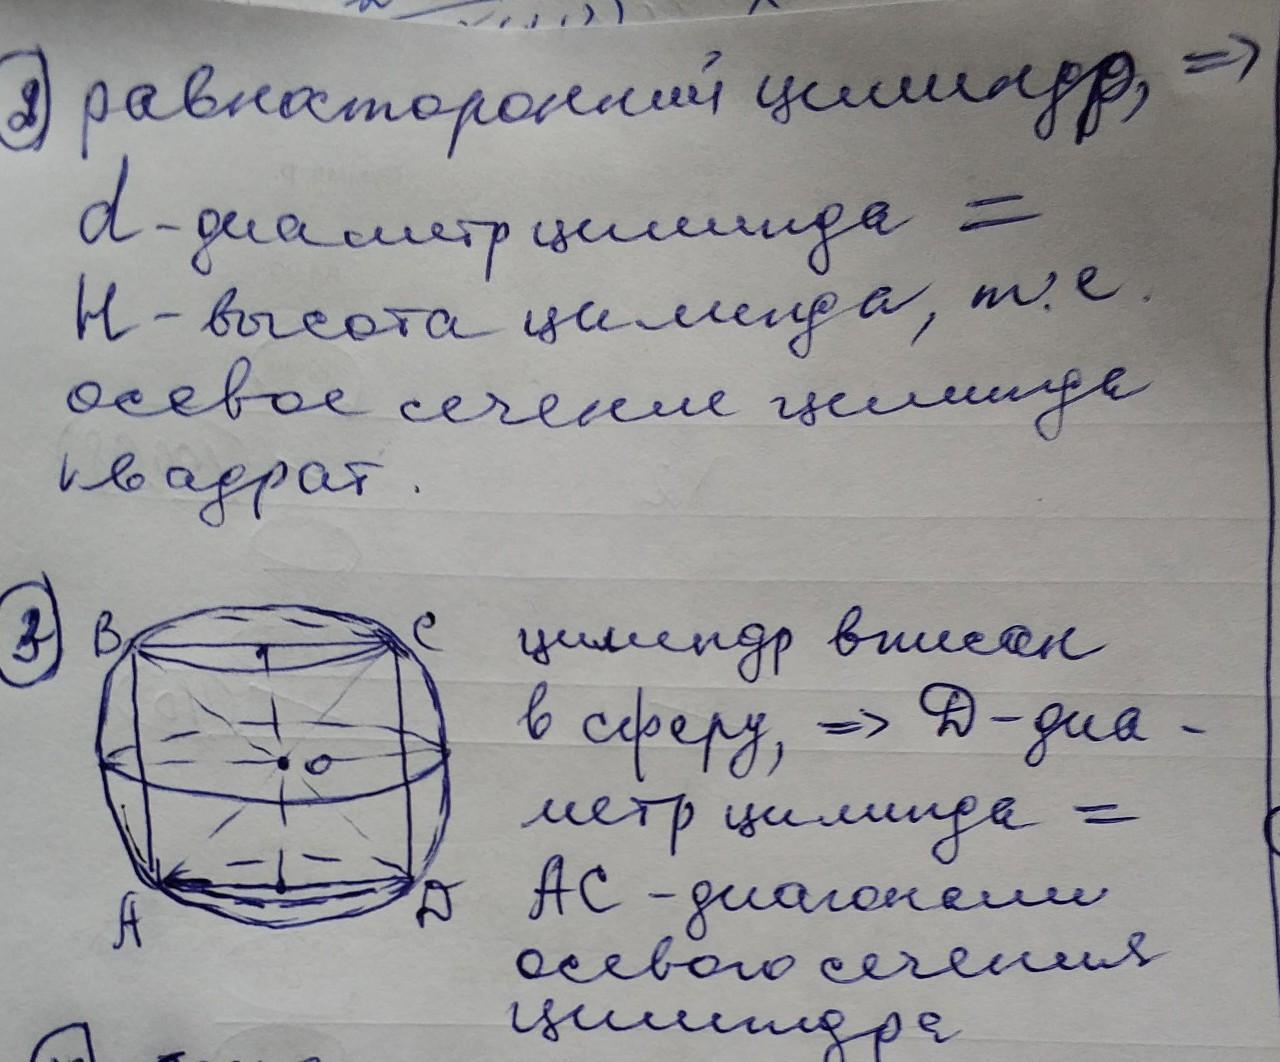 ② равносторонний цилиндр, =>
d - диаметр цилинда =
H - высота цилинда, т.е.
осевое сечение цилинда
квадрат.
③
B C
O
A D
цилиндр вписан
в сферу, => D - диа -
метр цилинда =
AC - диагонали
осевого сечения
цилиндра